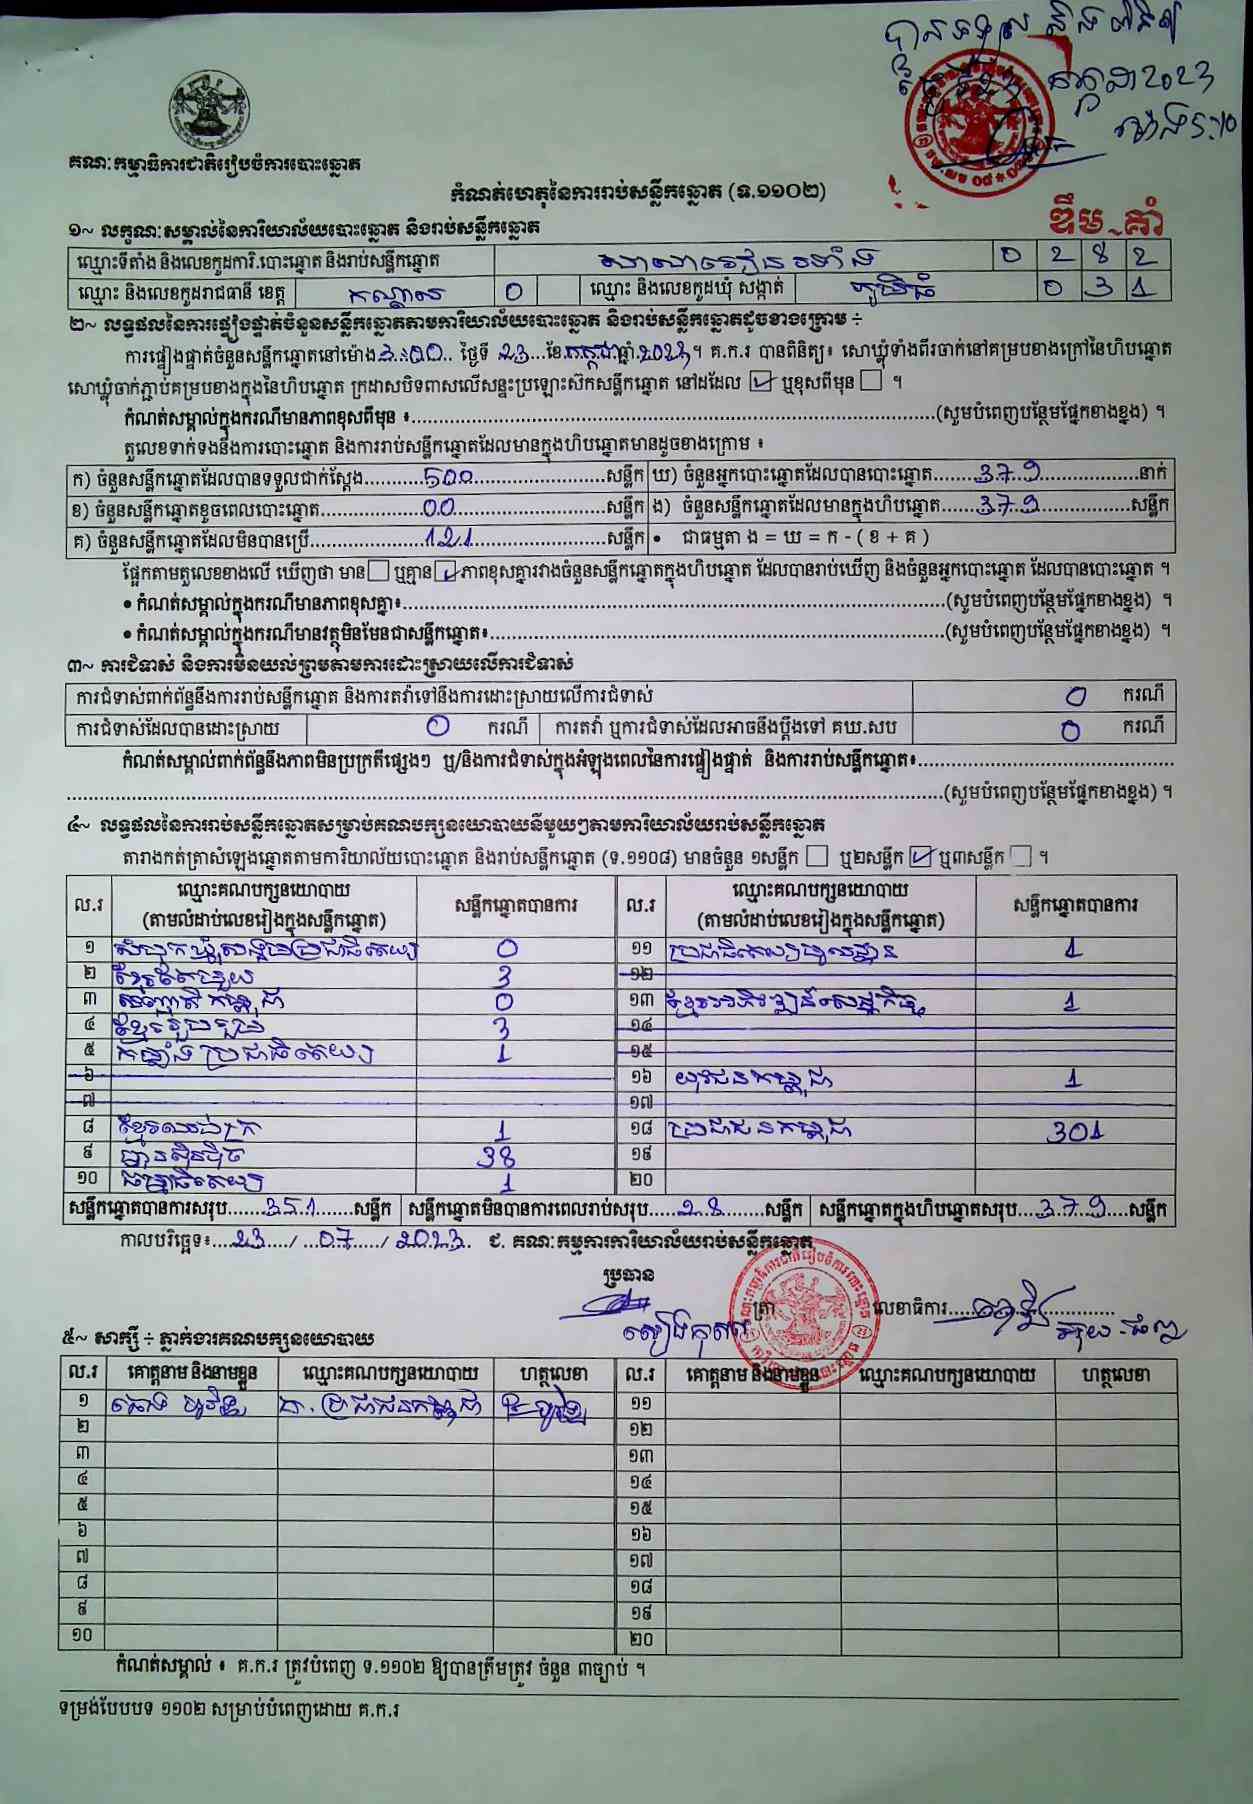 បានទទួល និងពិនិត្យ
កក្កដា 2023
ម៉ោង 5:10
គណៈកម្មាធិការជាតិរៀបចំការបោះឆ្នោត
កំណត់ហេតុនៃការរាប់សន្លឹកឆ្នោត (ទ.១១០២)
ឌឹម គាំ
១~ លក្ខណៈសម្គាល់នៃការិយាល័យបោះឆ្នោត និងរាប់សន្លឹកឆ្នោត
ឈ្មោះទីតាំង និងលេខកូដការិ.បោះឆ្នោត និងរាប់សន្លឹកឆ្នោត សាលារៀន 0 2 8 2
ឈ្មោះ និងលេខកូដរាជធានី ខេត្ត កណ្តាល 0 ឈ្មោះ និងលេខកូដឃុំ សង្កាត់ ភូមិធំ 0 3 1
២~ លទ្ធផលនៃការផ្ទៀងផ្ទាត់ចំនួនសន្លឹកឆ្នោតតាមការិយាល័យបោះឆ្នោត និងរាប់សន្លឹកឆ្នោតដូចខាងក្រោម ÷
ការផ្ទៀងផ្ទាត់ចំនួនសន្លឹកឆ្នោតនៅម៉ោង 3:00 ថ្ងៃទី 23 ខែ កក្កដា ឆ្នាំ 2023 ។ គ.ក.រ បានពិនិត្យ៖ សោឃ្លុំទាំងពីរចាក់នៅគម្របខាងក្រៅនៃហិបឆ្នោត
សោឃ្លុំចាក់ភ្ជាប់គម្របខាងក្នុងនៃហិបឆ្នោត ក្រដាសបិទពាសលើសន្ទះប្រឡោះស៊កសន្លឹកឆ្នោត នៅដដែល ☑ ឬខុសពីមុន ☐ ។
កំណត់សម្គាល់ក្នុងករណីមានភាពខុសពីមុន ៖........(សូមបំពេញបន្ថែមផ្នែកខាងខ្នង) ។
តួលេខទាក់ទងនឹងការបោះឆ្នោត និងការរាប់សន្លឹកឆ្នោតដែលមានក្នុងហិបឆ្នោតមានដូចខាងក្រោម ៖
ក) ចំនួនសន្លឹកឆ្នោតដែលបានទទួលជាក់ស្តែង........500........សន្លឹក ឃ) ចំនួនអ្នកបោះឆ្នោតដែលបានបោះឆ្នោត........379........នាក់
ខ) ចំនួនសន្លឹកឆ្នោតខូចពេលបោះឆ្នោត........00........សន្លឹក ង) ចំនួនសន្លឹកឆ្នោតដែលមានក្នុងហិបឆ្នោត........379........សន្លឹក
គ) ចំនួនសន្លឹកឆ្នោតដែលមិនបានប្រើ........121........សន្លឹក • ជាធម្មតា ង = ឃ = ក - ( ខ + គ )
ផ្អែកតាមតួលេខខាងលើ ឃើញថា មាន ☐ ឬគ្មាន ☑ ភាពខុសគ្នារវាងចំនួនសន្លឹកឆ្នោតក្នុងហិបឆ្នោត ដែលបានរាប់ឃើញ និងចំនួនអ្នកបោះឆ្នោត ដែលបានបោះឆ្នោត ។
• កំណត់សម្គាល់ក្នុងករណីមានភាពខុសគ្នា៖........(សូមបំពេញបន្ថែមផ្នែកខាងខ្នង) ។
• កំណត់សម្គាល់ក្នុងករណីមានវត្ថុមិនមែនជាសន្លឹកឆ្នោត៖........(សូមបំពេញបន្ថែមផ្នែកខាងខ្នង) ។
៣~ ការជំទាស់ និងការមិនយល់ព្រមតាមការដោះស្រាយលើការជំទាស់
ការជំទាស់ពាក់ព័ន្ធនឹងការរាប់សន្លឹកឆ្នោត និងការតវ៉ាទៅនឹងការដោះស្រាយលើការជំទាស់ 0 ករណី
ការជំទាស់ដែលបានដោះស្រាយ 0 ករណី ការតវ៉ា ឬការជំទាស់ដែលអាចនឹងប្តឹងទៅ គឃ.សប 0 ករណី
កំណត់សម្គាល់ពាក់ព័ន្ធនឹងភាពមិនប្រក្រតីផ្សេងៗ ឬ/និងការជំទាស់ក្នុងអំឡុងពេលនៃការផ្ទៀងផ្ទាត់ និងការរាប់សន្លឹកឆ្នោត៖........
........(សូមបំពេញបន្ថែមផ្នែកខាងខ្នង) ។
៤~ លទ្ធផលនៃការរាប់សន្លឹកឆ្នោតសម្រាប់គណបក្សនយោបាយនីមួយៗតាមការិយាល័យរាប់សន្លឹកឆ្នោត
តារាងកត់ត្រាសំឡេងឆ្នោតតាមការិយាល័យបោះឆ្នោត និងរាប់សន្លឹកឆ្នោត (ទ.១១០៨) មានចំនួន ១សន្លឹក ☐ ឬ២សន្លឹក ☑ ឬ៣សន្លឹក ☐ ។
ល.រ ឈ្មោះគណបក្សនយោបាយ (តាមលំដាប់លេខរៀងក្នុងសន្លឹកឆ្នោត) សន្លឹកឆ្នោតបានការ ល.រ ឈ្មោះគណបក្សនយោបាយ (តាមលំដាប់លេខរៀងក្នុងសន្លឹកឆ្នោត) សន្លឹកឆ្នោតបានការ
១ សំបុកឃ្មុំសង្គមប្រជាធិបតេយ្យ 0 ១១ ប្រជាធិបតេយ្យមូលដ្ឋាន 1
២ ខ្មែរតែមួយ 3 ១២
៣ សញ្ជាតិកម្ពុជា 0 ១៣ ខ្មែរអភិវឌ្ឍន៍សេដ្ឋកិច្ច 1
៤ ខ្មែររួបរួម 3 ១៤
៥ កម្លាំងប្រជាធិបតេយ្យ 1 ១៥
៦ ១៦ យុវជនកម្ពុជា 1
៧ ១៧
៨ ខ្មែរឈប់ក្រ 1 ១៨ ប្រជាជនកម្ពុជា 301
៩ ហ្វ៊ុនស៊ិនប៉ិច 38 ១៩
១០ ធម្មាធិបតេយ្យ 1 ២០
សន្លឹកឆ្នោតបានការសរុប......351......សន្លឹក សន្លឹកឆ្នោតមិនបានការពេលរាប់សរុប......28......សន្លឹក សន្លឹកឆ្នោតក្នុងហិបឆ្នោតសរុប......379......សន្លឹក
កាលបរិច្ឆេទ៖ 23 / 07 / 2023 ជ. គណៈកម្មការការិយាល័យរាប់សន្លឹកឆ្នោត
ប្រធាន
ត្រា លេខាធិការ
៥~ សាក្សី ÷ ភ្នាក់ងារគណបក្សនយោបាយ
ល.រ គោត្តនាម និងនាមខ្លួន ឈ្មោះគណបក្សនយោបាយ ហត្ថលេខា ល.រ គោត្តនាម និងនាមខ្លួន ឈ្មោះគណបក្សនយោបាយ ហត្ថលេខា
១ គ.ប្រជាជនកម្ពុជា ១១
២ ១២
៣ ១៣
៤ ១៤
៥ ១៥
៦ ១៦
៧ ១៧
៨ ១៨
៩ ១៩
១០ ២០
កំណត់សម្គាល់ ៖ គ.ក.រ ត្រូវបំពេញ ទ.១១០២ ឱ្យបានត្រឹមត្រូវ ចំនួន ៣ច្បាប់ ។
ទម្រង់បែបបទ ១១០២ សម្រាប់បំពេញដោយ គ.ក.រ